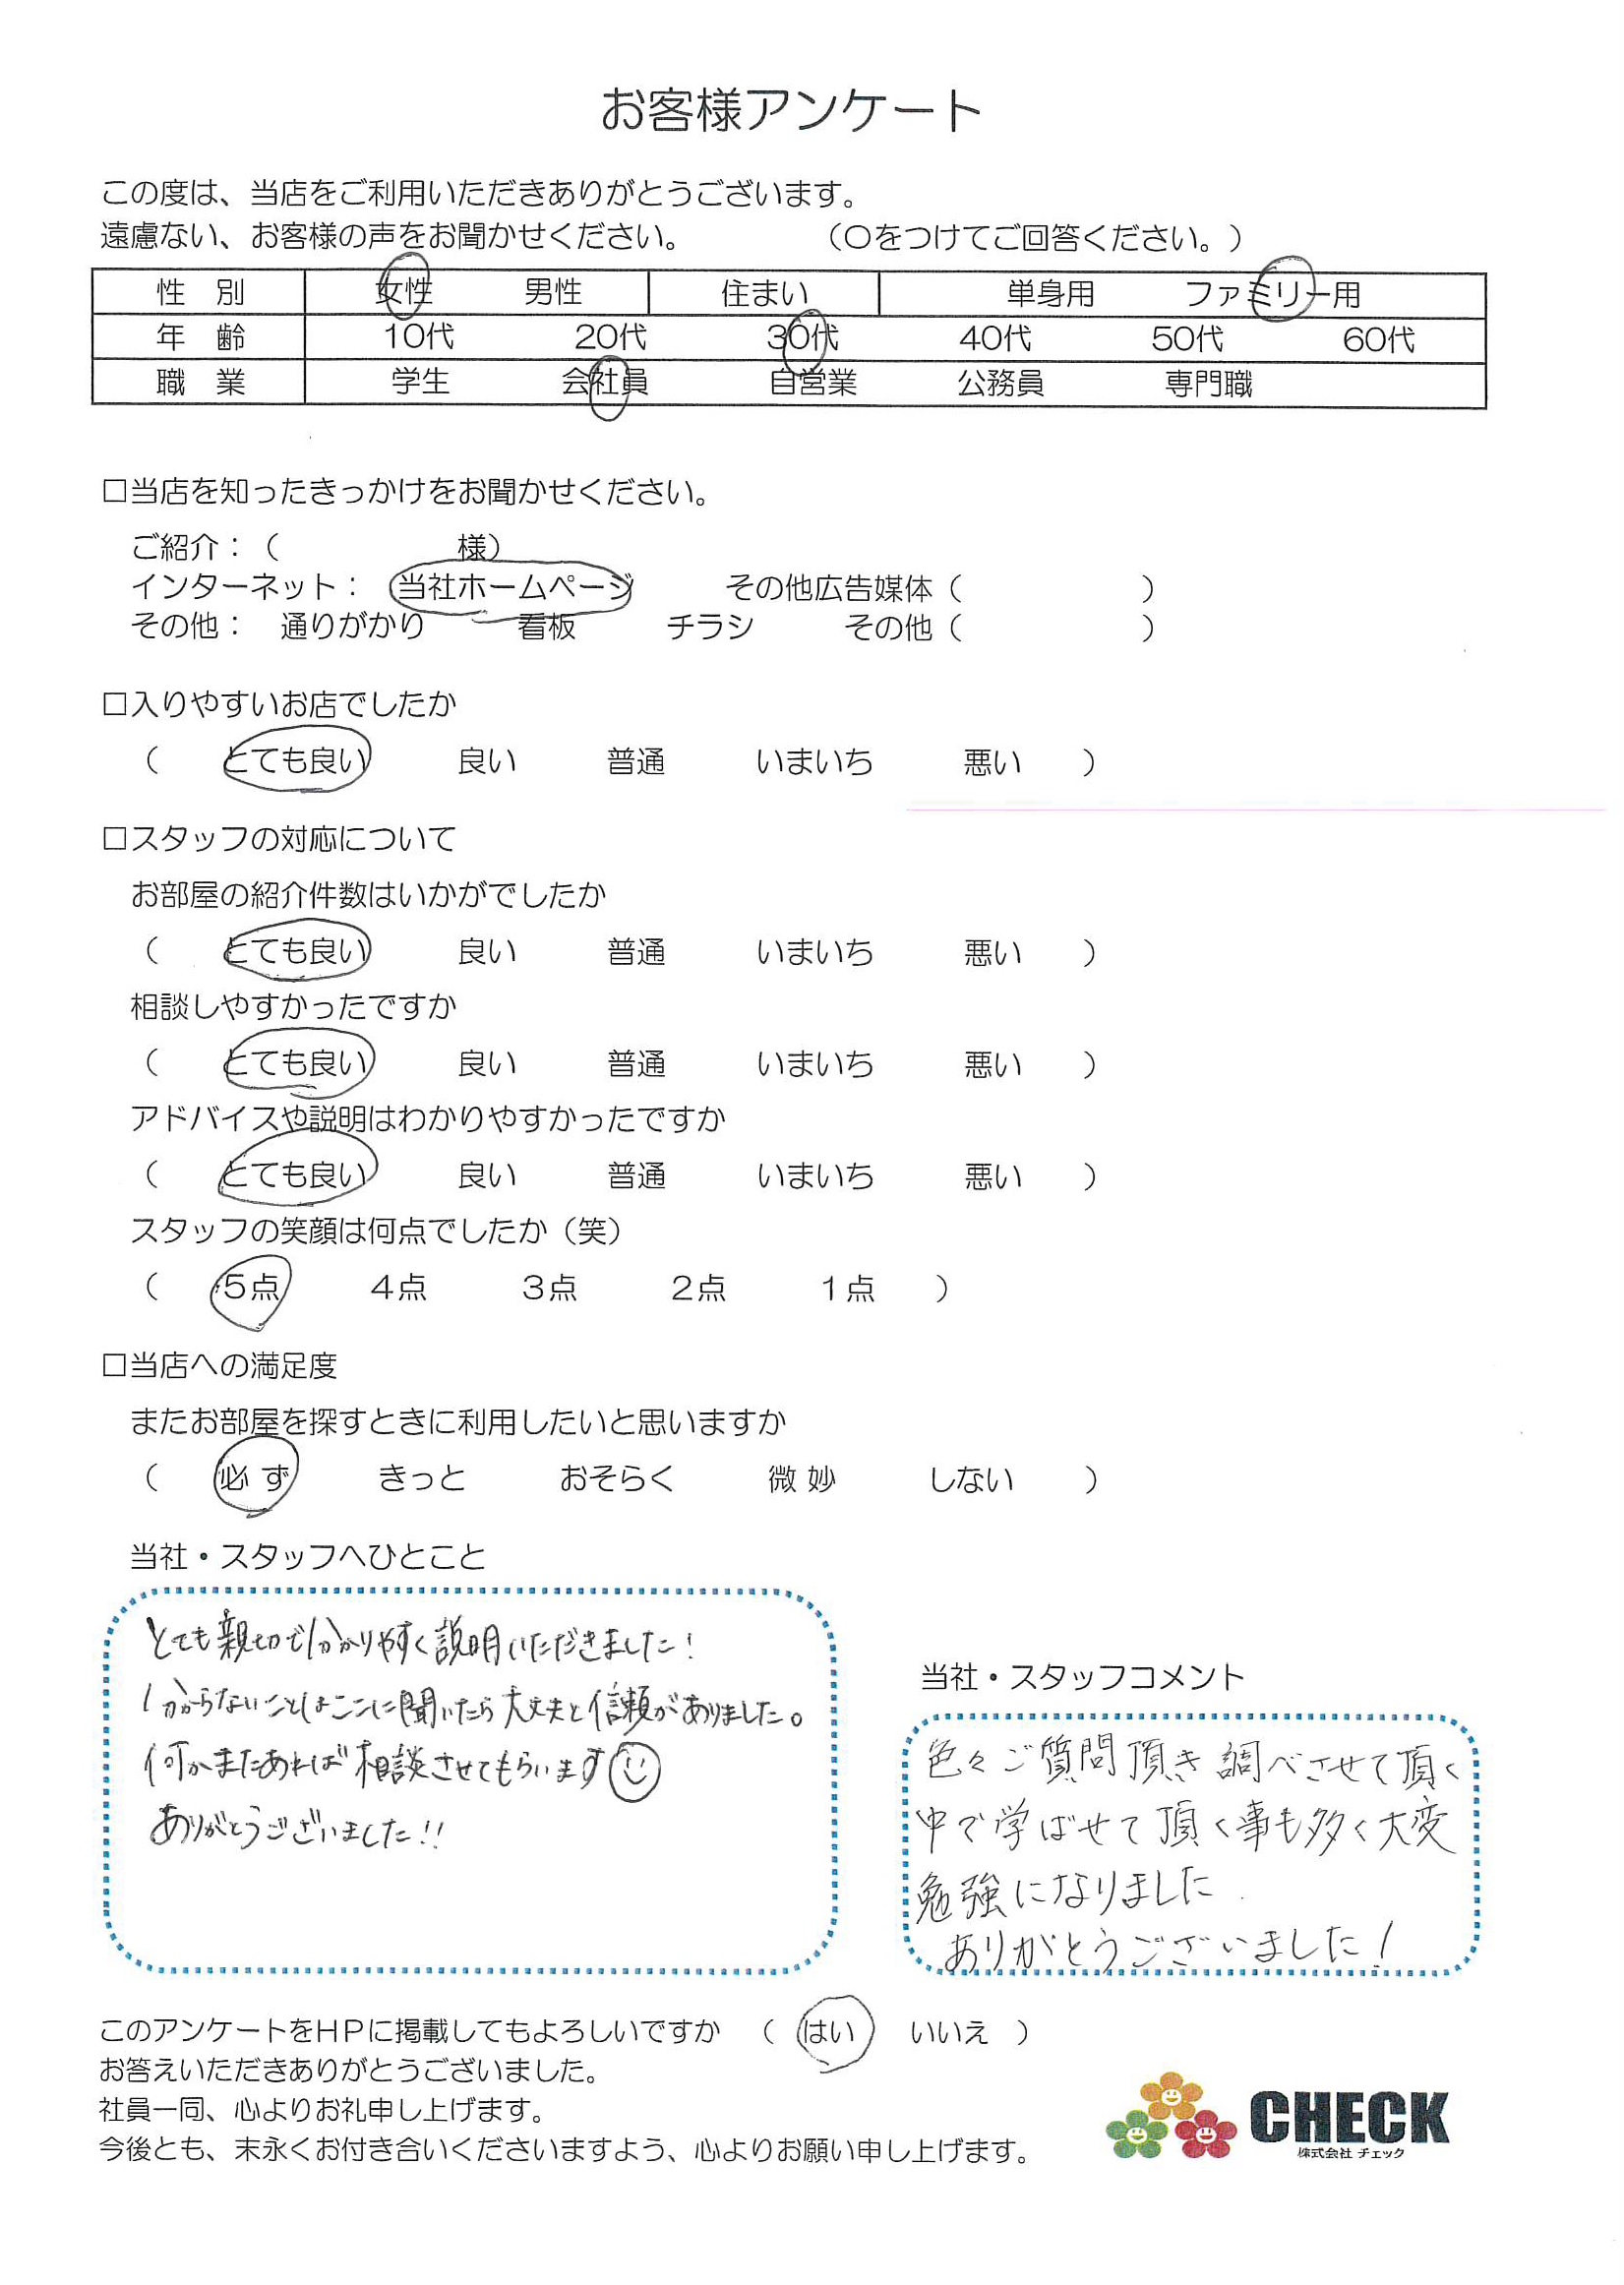 お客様アンケート
この度は、当店をご利用いただきありがとうございます。
遠慮ない、お客様の声をお聞かせください。　（○をつけてご回答ください。）
性　別　女性　男性　住まい　単身用　ファミリー用
年　齢　10代　20代　30代　40代　50代　60代
職　業　学生　会社員　自営業　公務員　専門職
□当店を知ったきっかけをお聞かせください。
ご紹介：（　　　様）
インターネット：　当社ホームページ　その他広告媒体（　　　）
その他：　通りがかり　看板　チラシ　その他（　　　）
□入りやすいお店でしたか
（　とても良い　良い　普通　いまいち　悪い　）
□スタッフの対応について
お部屋の紹介件数はいかがでしたか
（　とても良い　良い　普通　いまいち　悪い　）
相談しやすかったですか
（　とても良い　良い　普通　いまいち　悪い　）
アドバイスや説明はわかりやすかったですか
（　とても良い　良い　普通　いまいち　悪い　）
スタッフの笑顔は何点でしたか（笑）
（　５点　４点　３点　２点　１点　）
□当店への満足度
またお部屋を探すときに利用したいと思いますか
（　必 ず　きっと　おそらく　微 妙　しない　）
当社・スタッフへひとこと
とても親切で分かりやすく説明いただきました！
分からないことはここに聞いたら大丈夫と信頼がありました。
何かまたあれば相談させてもらいます
ありがとうございました!!
当社・スタッフコメント
色々ご質問頂き調べさせて頂く
中で学ばせて頂く事も多く大変
勉強になりました.
ありがとうございました！
このアンケートをＨＰに掲載してもよろしいですか　（　はい　いいえ　）
お答えいただきありがとうございました。
社員一同、心よりお礼申し上げます。
今後とも、末永くお付き合いくださいますよう、心よりお願い申し上げます。
CHECK
株式会社 チェック